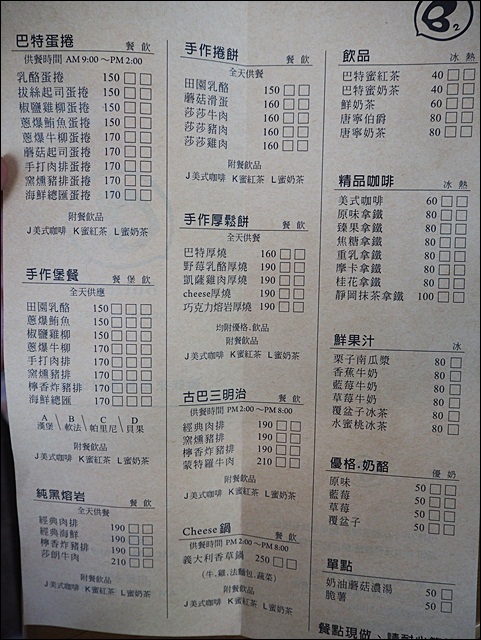 B2
巴特蛋捲 餐 飲
供餐時間 AM 9:00 ~PM 2:00
乳酪蛋捲 150
拔絲起司蛋捲 150
椒鹽雞柳蛋捲 150
蔥爆鮪魚蛋捲 150
蔥爆牛柳蛋捲 170
蘑菇起司蛋捲 170
手打肉排蛋捲 170
窯燻豬排蛋捲 170
海鮮總匯蛋捲 170
附餐飲品
J美式咖啡 K蜜紅茶 L蜜奶茶
手作堡餐 餐 堡 飲
全天供應
田園乳酪 150
蔥爆鮪魚 150
椒鹽雞柳 150
蔥爆牛柳 170
手打肉排 170
窯燻豬排 170
檸香炸豬排 170
海鮮總匯 170
A B C D
漢堡 \ 軟法 \ 帕里尼 \ 貝果
附餐飲品
J美式咖啡 K蜜紅茶 L蜜奶茶
純黑熔岩 餐 飲
全天供餐
經典肉排 190
經典海鮮 190
檸香炸豬排 190
莎朗牛肉 210
附餐飲品
J美式咖啡 K蜜紅茶 L蜜奶茶
手作捲餅 餐 飲
全天供餐
田園乳酪 150
蘑菇滑蛋 160
莎莎牛肉 160
莎莎豬肉 160
莎莎雞肉 160
附餐飲品
J美式咖啡 K蜜紅茶 L蜜奶茶
手作厚鬆餅 餐 飲
全天供餐
巴特厚燒 160
野莓乳酪厚燒 190
凱薩雞肉厚燒 190
cheese厚燒 190
巧克力熔岩厚燒 190
均附優格.飲品
附餐飲品
J美式咖啡 K蜜紅茶 L蜜奶茶
古巴三明治 餐 飲
供餐時間 PM 2:00 ~PM 8:00
經典肉排 190
窯燻豬排 190
檸香炸豬排 190
蒙特羅牛肉 210
附餐飲品
J美式咖啡 K蜜紅茶 L蜜奶茶
Cheese鍋 餐 飲
供餐時間 PM 2:00 ~PM 8:00
義大利香草鍋 250
(牛.雞.法麵包.蔬菜)
附餐飲品
J美式咖啡 K蜜紅茶 L蜜奶茶
飲品 冰 熱
巴特蜜紅茶 40
巴特蜜奶茶 40
鮮奶茶 60
唐寧伯爵 80
唐寧奶茶 80
精品咖啡 冰 熱
美式咖啡 60
原味拿鐵 80
臻果拿鐵 80
焦糖拿鐵 80
重乳拿鐵 80
摩卡拿鐵 80
桂花拿鐵 80
靜岡抹茶拿鐵 100
鮮果汁 冰
栗子南瓜漿 80
香蕉牛奶 80
藍莓牛奶 80
草莓牛奶 80
覆盆子冰茶 80
水蜜桃冰茶 80
優格.奶酪 優 奶
原味 50
藍莓 50
草莓 50
覆盆子 50
單點
奶油蘑菇濃湯 50
脆薯 50
餐點現做、請耐心